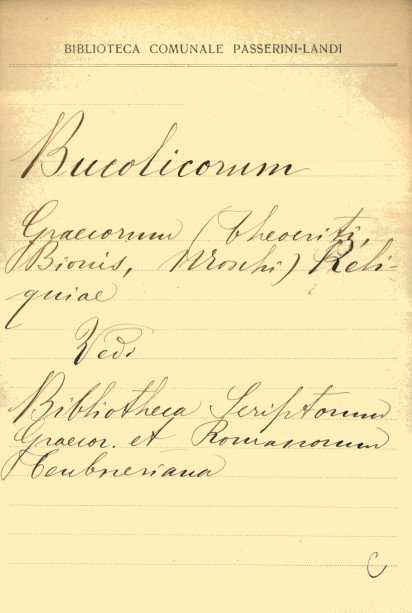 BIBLIOTECA COMUNALE PASSERINI-LANDI
Bucolicorum
Graecorum (Theocriti,
Bionis, Moschi) Reli-
quiae
Vedi
Bibliotheca Scriptorum
Graecor. et Romanorum
Teubneriana
C